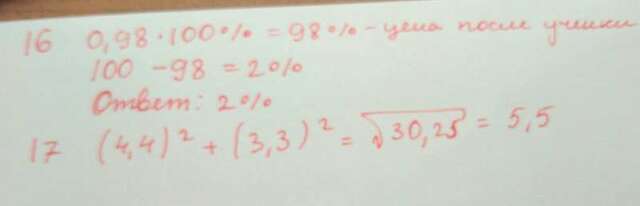 16 0,98·100% = 98% - цена после уценки
100 - 98 = 2%
Ответ: 2%
17 (4,4)² + (3,3)² = √30,25 = 5,5